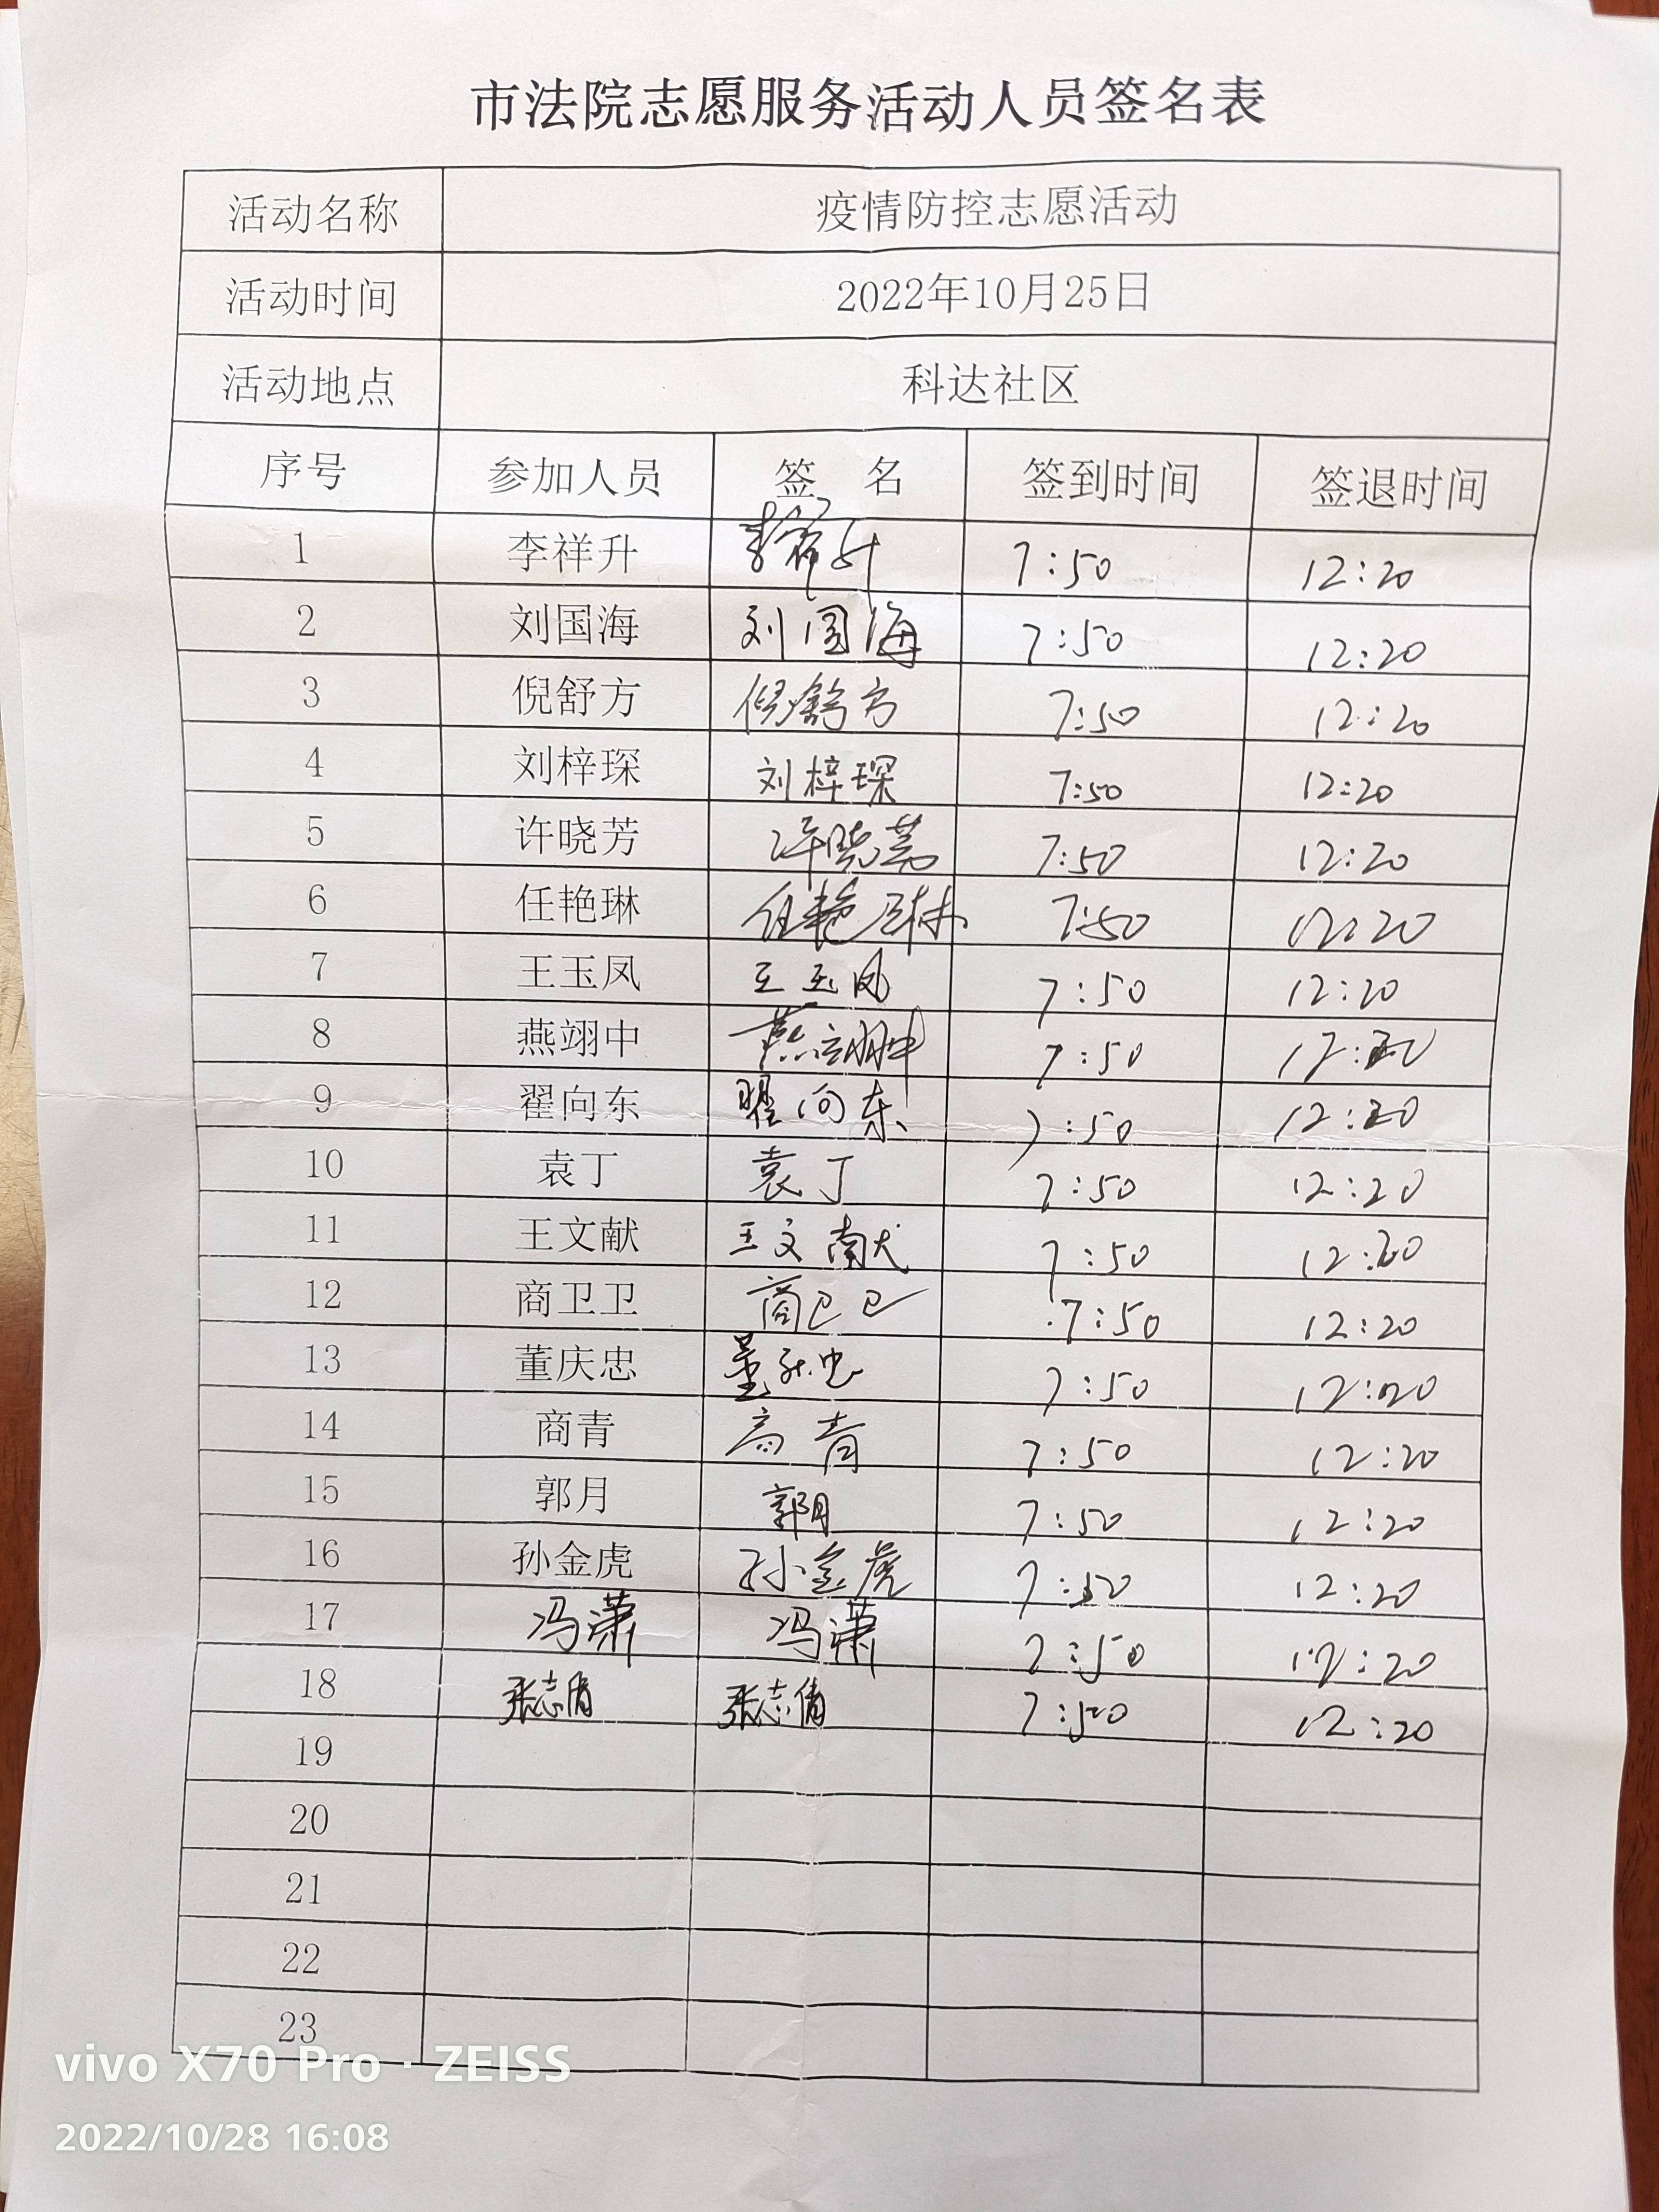 市法院志愿服务活动人员签名表
活动名称 疫情防控志愿活动
活动时间 2022年10月25日
活动地点 科达社区
序号 参加人员 签 名 签到时间 签退时间
1 李祥升 李祥升 7:50 12:20
2 刘国海 刘国海 7:50 12:20
3 倪舒方 倪舒方 7:50 12:20
4 刘梓琛 刘梓琛 7:50 12:20
5 许晓芳 许晓芳 7:50 12:20
6 任艳琳 任艳琳 7:50 12:20
7 王玉凤 王玉凤 7:50 12:20
8 燕翊中 燕翊中 7:50 12:20
9 翟向东 翟向东 7:50 12:20
10 袁丁 袁丁 7:50 12:20
11 王文献 王文献 7:50 12:20
12 商卫卫 商卫卫 7:50 12:20
13 董庆忠 董庆忠 7:50 12:20
14 商青 商青 7:50 12:20
15 郭月 郭月 7:50 12:20
16 孙金虎 孙金虎 7:50 12:20
17 冯潇 冯潇 7:50 12:20
18 张志倩 张志倩 7:50 12:20
19
20
21
22
23
vivo X70 Pro · ZEISS
2022/10/28 16:08